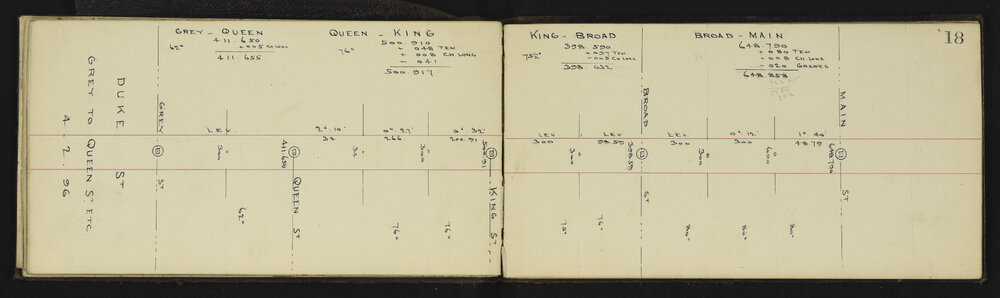 DUKE ST
GREY TO QUEEN ST. ETC.
4.2.96
GREY - QUEEN
62°
411.650
+.005 CH LONG
411.655
QUEEN - KING
76°
500.910
+ .048 TEM
+ .008 CH LONG
- .041
500.917
GREY ST
LEV
300
62°
411.650
QUEEN ST
2°.10'
34
34
0°.27'
266
300
0°.32'
200.91
500.91
76°
76°
KING ST
18
KING - BROAD
398.590
+ .037 TEM
+ .005 CH LONG
398.632
BROAD - MAIN
648.790
+ .080 TEM
+ .008 CH LONG
- .020 GRADES
648.858
LEV
300
300
LEV
98.59
398.59
75°
76°
BROAD ST
LEV
300
300
0°.12'
300
600
1°.40'
48.79
648.790
80°
MAIN ST